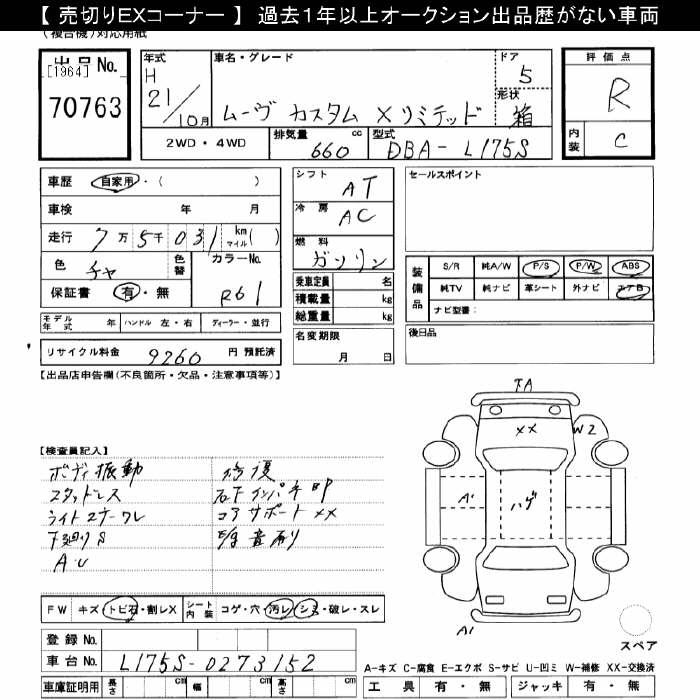 【 売切りEXコーナー 】 過去1年以上オークション出品歴がない車両
(複合機)対応用紙
出品 No.
[1964]
70763
年式
H
21/10月
車名・グレード
ムーヴ カスタム X リミテッド
ドア
5
形状
箱
評価点
R
内装
C
2WD・4WD
排気量
660
cc
型式
DBA-L175S
車歴 自家用・( )
車検 年 月
走行 7万5千031 km マイル( )
色 チャ
色替
カラーNo.
R61
保証書 有・無
モデル年式 年 ハンドル 左・右 ディーラー・並行
リサイクル料金 9260 円 預託済
シフト
AT
冷房
AC
燃料
ガソリン
乗車定員 名
積載量 kg
総重量 kg
名変期限
月 日
セールスポイント
装備品
S/R 純A/W P/S P/W ABS
純TV 純ナビ 革シート 外ナビ エアB
ナビ型番:
後日品
【出品店申告欄(不良箇所・欠品・注意事項等)】
【検査員記入】
ボディ振動
スタッドレス
ライトステーワレ
下廻りS
A・U
修復
右Fインパネ凹P
コアサポートXX
E/g音有り
FW キズ・トビ石・割レX
シート内装 コゲ・穴・汚レ・シミ・破レ・スレ
登録No.
車台No. L175S-0273152
車庫証明用 長さ cm 幅 cm 高さ cm
下A
XX
W2
A1
ハゲ
A1
スペア
A-キズ C-腐食 E-エクボ S-サビ U-凹ミ W-補修 XX-交換済
工具 有・無 ジャッキ 有・無